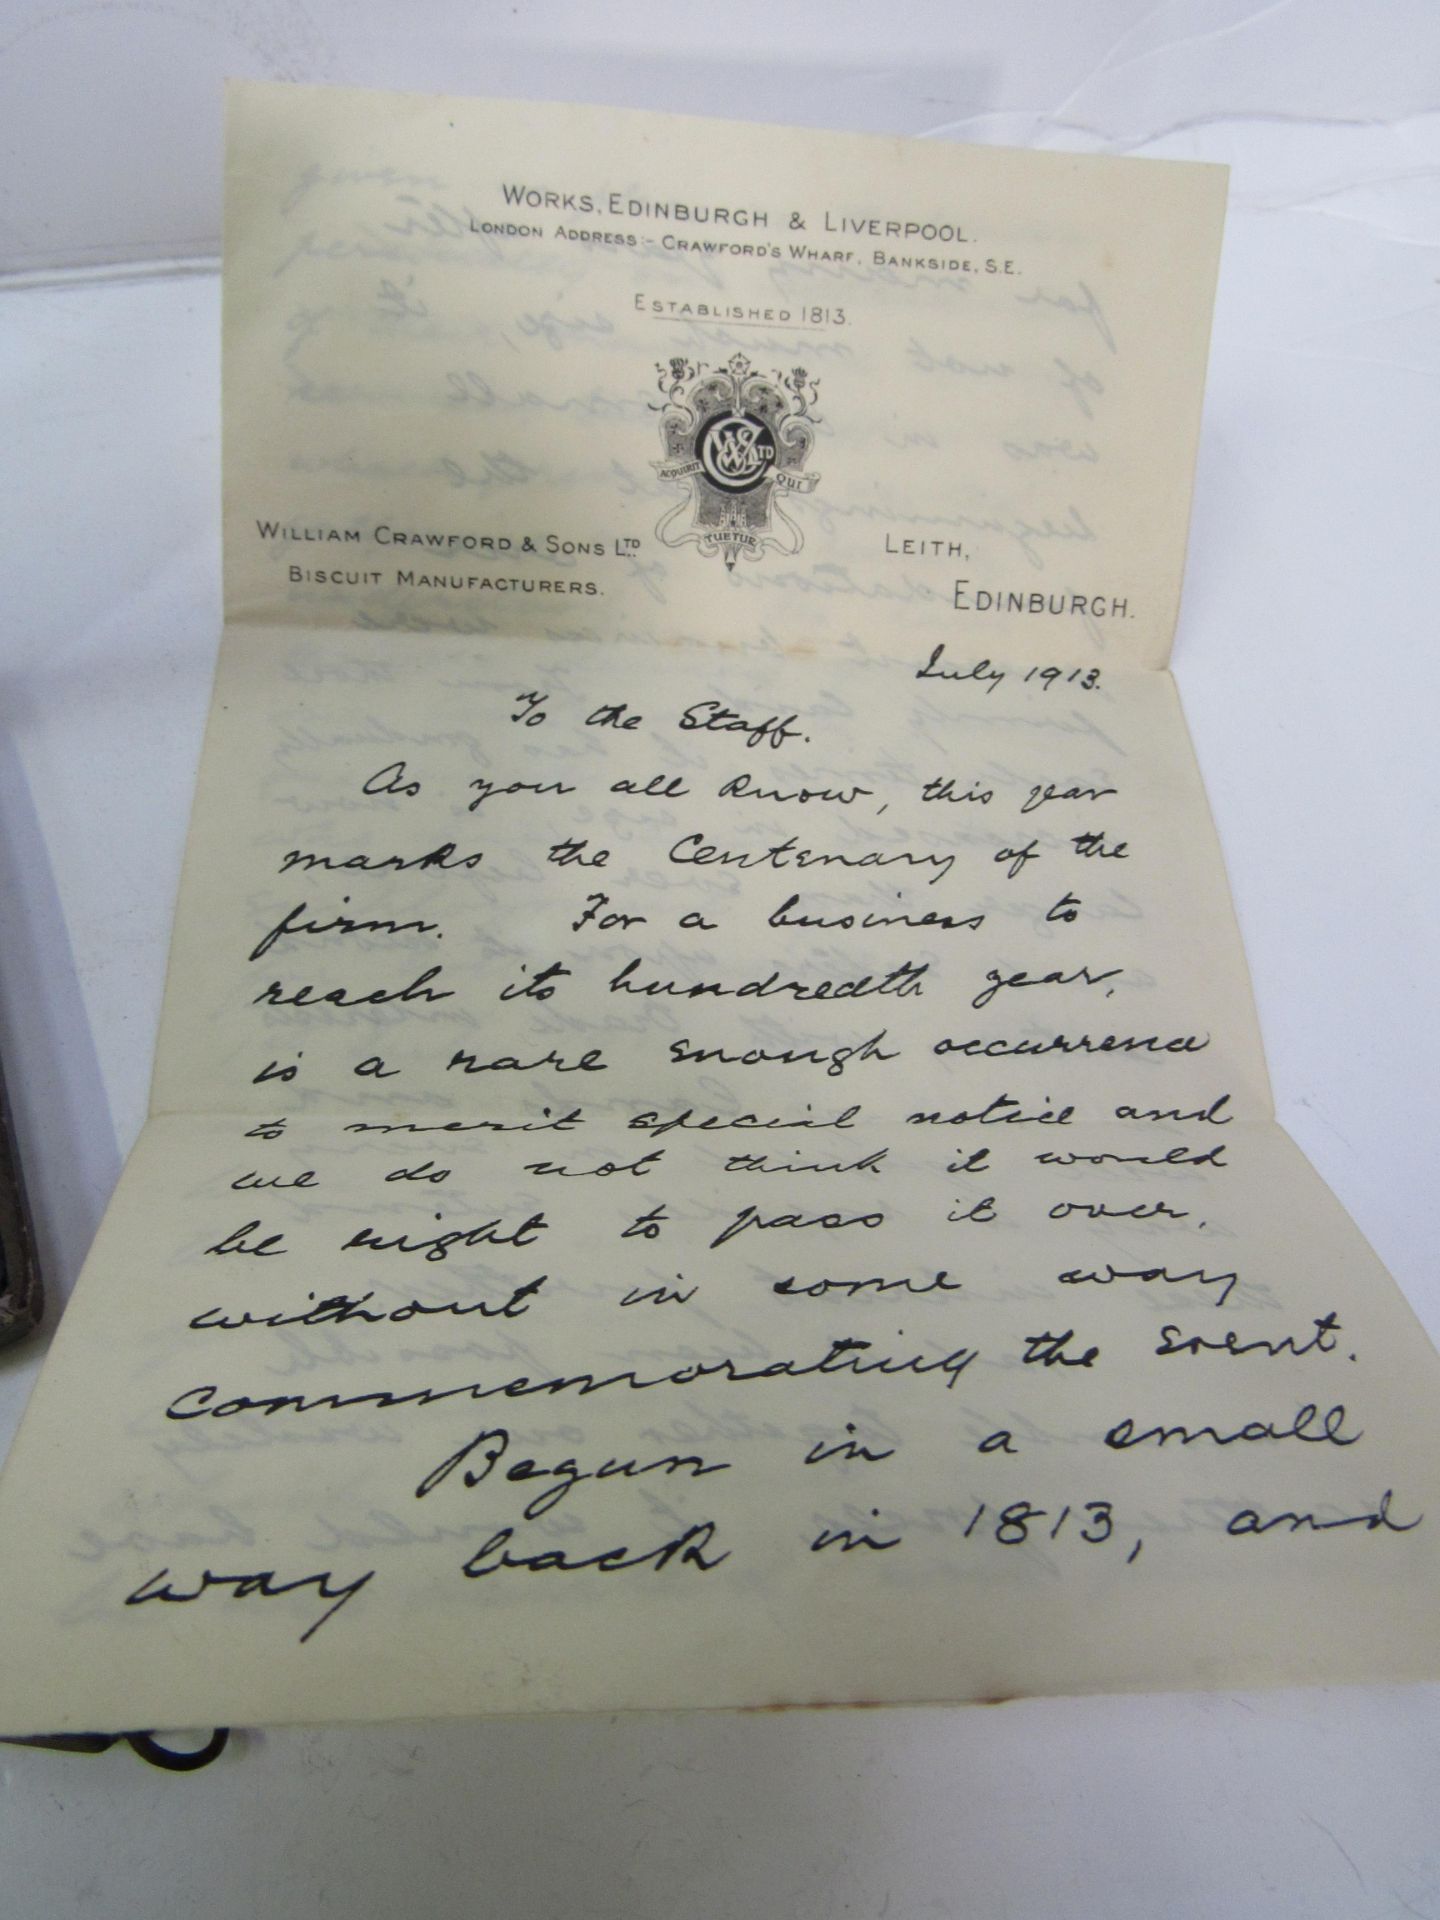 WORKS, EDINBURGH & LIVERPOOL.
LONDON ADDRESS:- CRAWFORD'S WHARF, BANKSIDE, S.E.
ESTABLISHED 1813.
WS&C LTD
ACQUIRIT QUI
TUETUR
WILLIAM CRAWFORD & SONS LTD.
BISCUIT MANUFACTURERS.
LEITH,
EDINBURGH.
July 1913.
To the Staff.
As you all know, this year
marks the Centenary of the
firm. For a business to
reach its hundredth year,
is a rare enough occurrence
to merit special notice and
we do not think it would
be right to pass it over,
without in some way
commemorating the event.
Begun in a small
way back in 1813, and